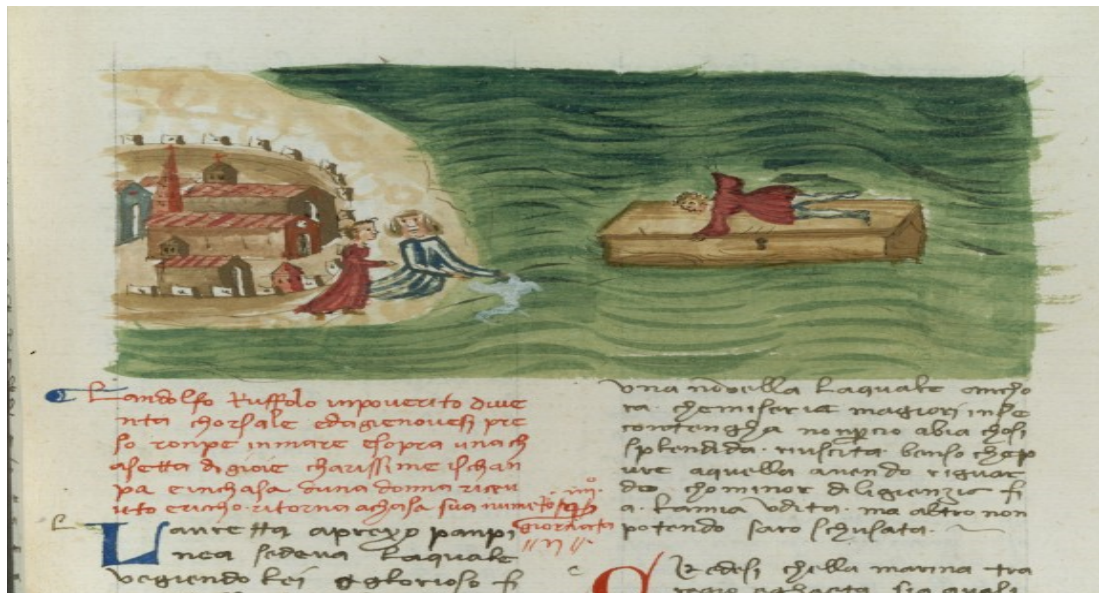 Landolfo ruffolo inpoverito dive
nta chorsale edagienovesi pre
so ronpe inmare esopra una ch
asetta di gioie charissime ischan
pa e inchasa duna donna riceu
utoericho ritorna achasa sua
giornata
Lauretta apresso panpi
nea sedeva laquale
vegiendo lei gglorioso fi
una novella laquale ancho
ra chemiserie magiori inse
contengha non percio abia chosi
splendida riuscita benso chep
ure aquella avendo riguar
do chominor diligienzia fi
a lamia udita ma altro non
potendo saro schusata
Credesi chella marina tra